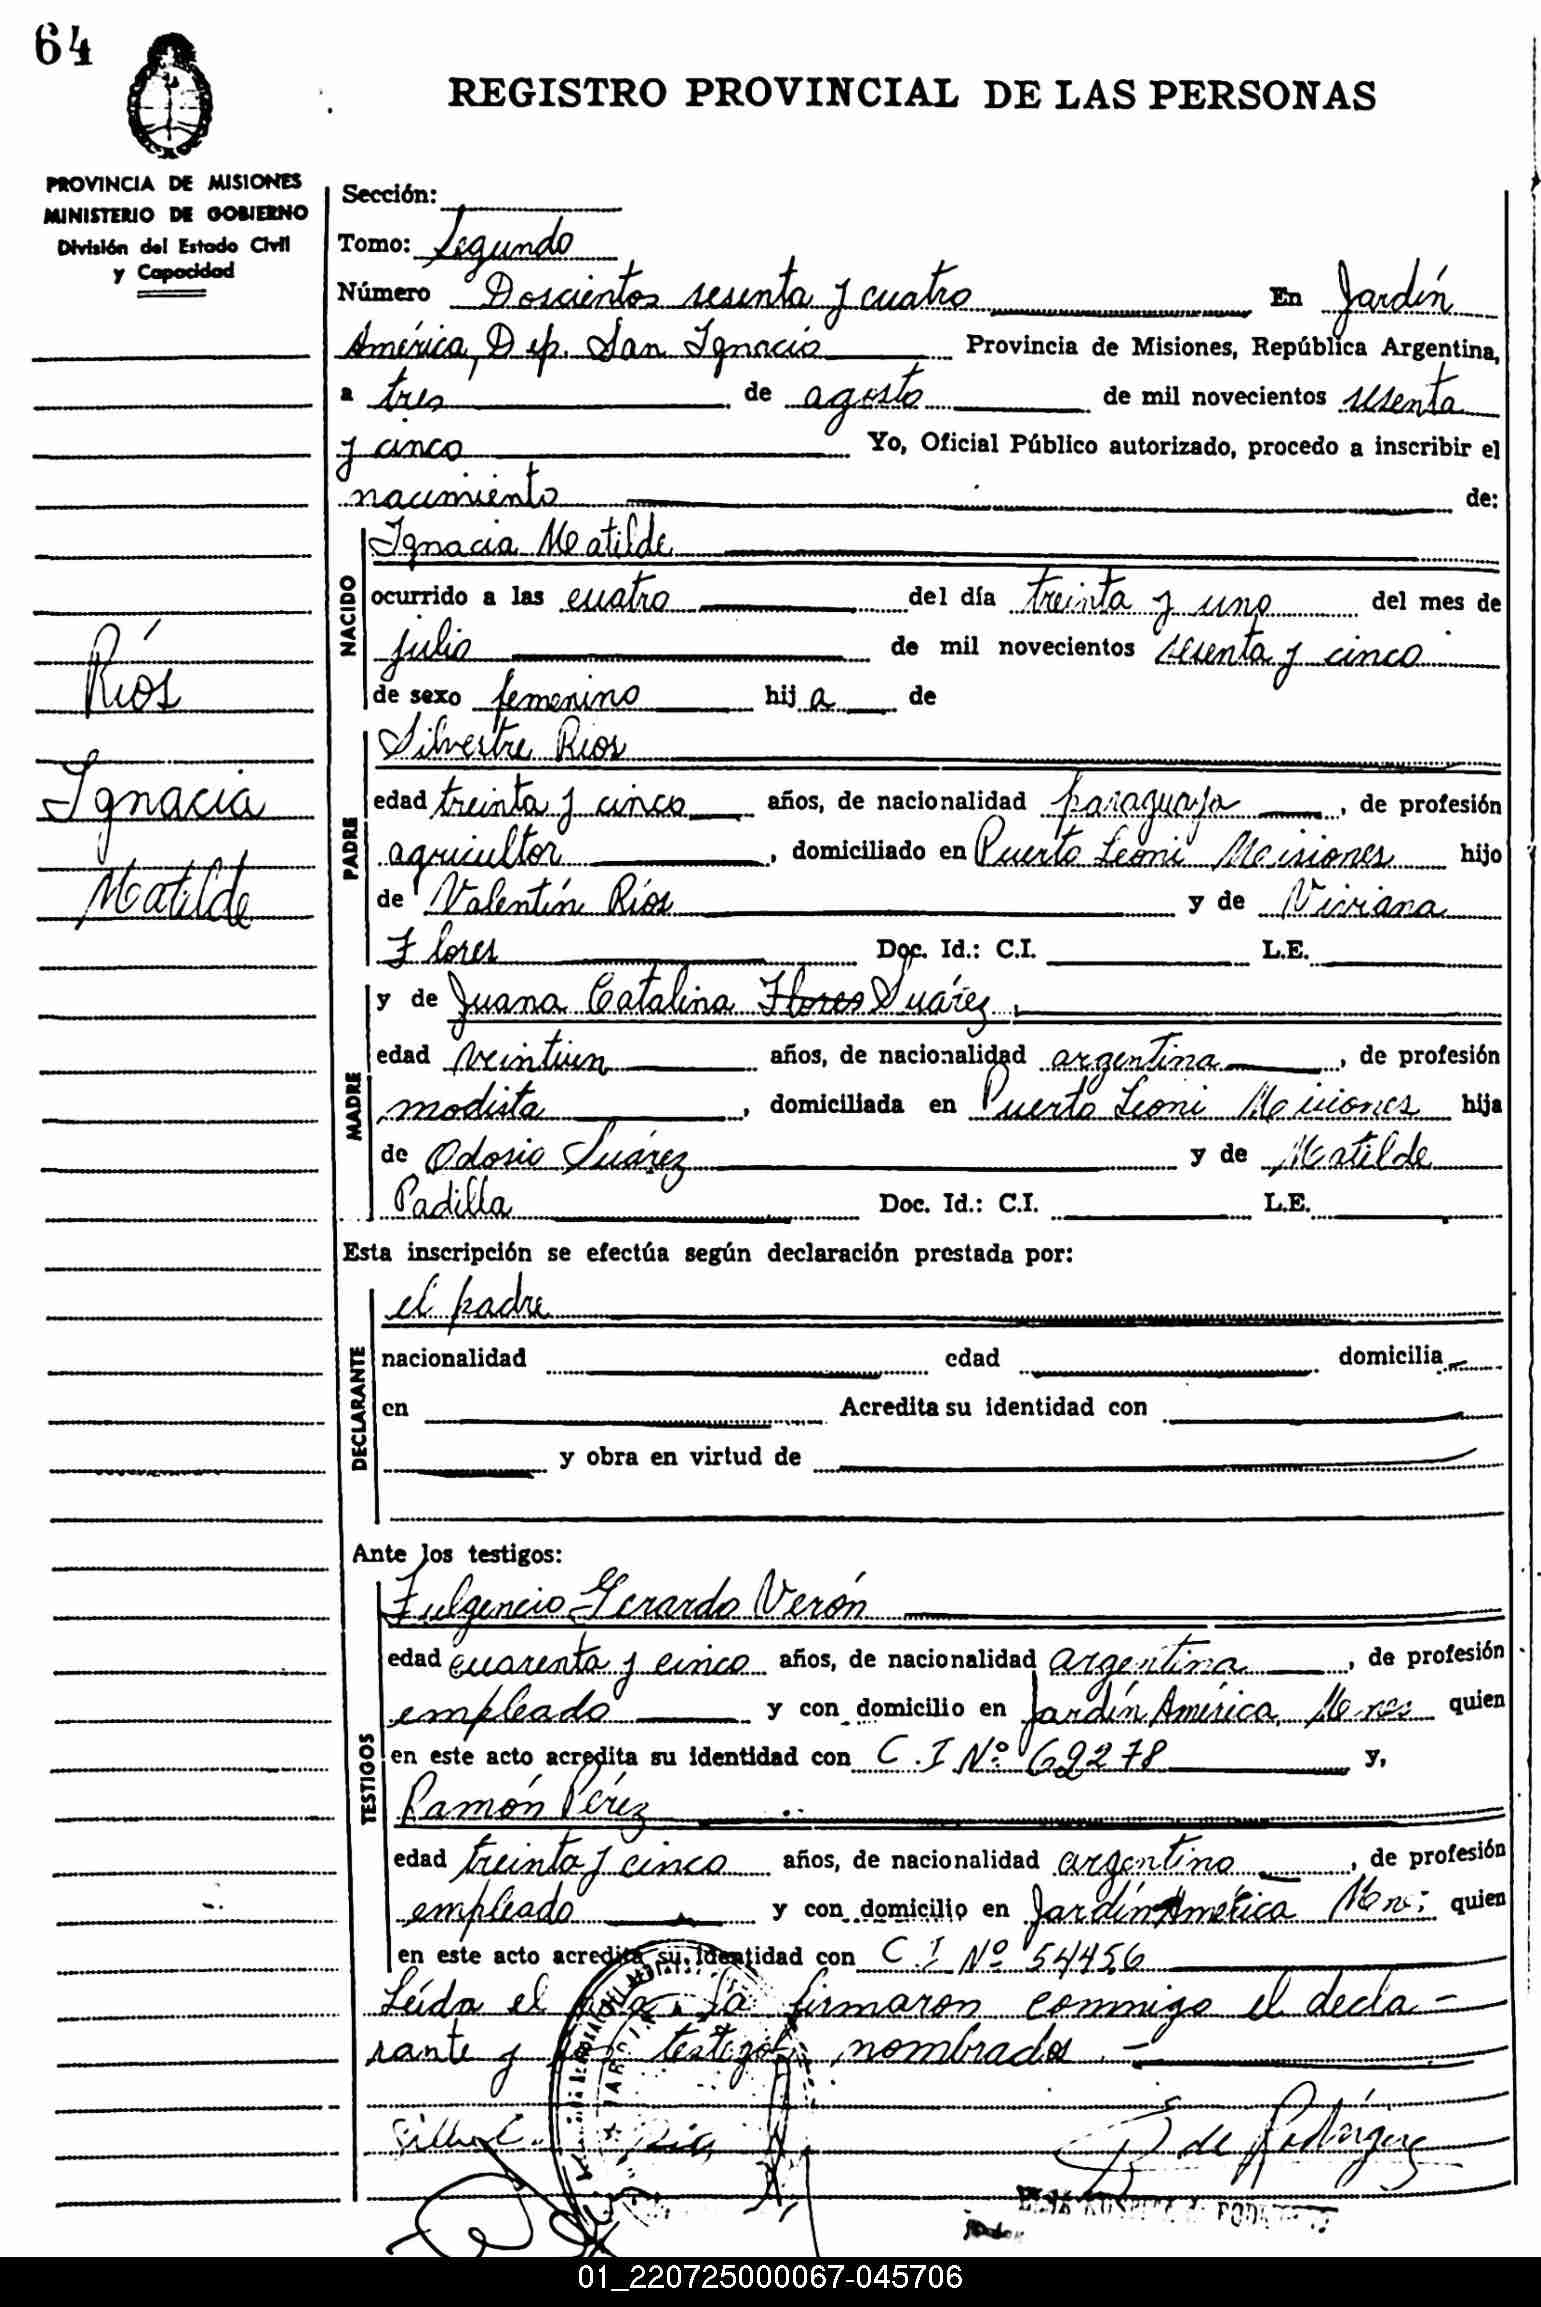 64
REGISTRO PROVINCIAL DE LAS PERSONAS
PROVINCIA DE MISIONES
MINISTERIO DE GOBIERNO
División del Estado Civil
y Capacidad
Ríos
Ignacia
Matilde
Sección:
Tomo: Segundo
Número Doscientos sesenta y cuatro En Jardín
América, Dep. San Ignacio Provincia de Misiones, República Argentina,
a tres de agosto de mil novecientos sesenta
y cinco Yo, Oficial Público autorizado, procedo a inscribir el
nacimiento de:
NACIDO
Ignacia Matilde
ocurrido a las cuatro del día treinta y uno del mes de
julio de mil novecientos sesenta y cinco
de sexo femenino hij a de
PADRE
Silvestre Rios
edad treinta y cinco años, de nacionalidad paraguaya, de profesión
agricultor, domiciliado en Puerto Leoni Misiones hijo
de Valentín Ríos y de Viviana
Flores Doc. Id.: C.I. L.E.
MADRE
y de Juana Catalina Flores Suárez
edad veintiun años, de nacionalidad argentina, de profesión
modista, domiciliada en Puerto Leoni Misiones hija
de Odosio Suárez y de Matilde
Padilla Doc. Id.: C.I. L.E.
Esta inscripción se efectúa según declaración prestada por:
DECLARANTE
el padre
nacionalidad edad domicilia
en Acredita su identidad con
y obra en virtud de
Ante los testigos:
TESTIGOS
Fulgencio Gerardo Verón
edad cuarenta y cinco años, de nacionalidad argentina, de profesión
empleado y con domicilio en Jardín América, Mnes quien
en este acto acredita su identidad con C.I Nº 69278 y,
Ramón Pérez
edad treinta y cinco años, de nacionalidad argentino, de profesión
empleado y con domicilio en Jardín América Mn: quien
en este acto acredita su identidad con C I Nº 54456
Leída el acta, la firmaron conmigo el decla-
rante y los testigos nombrados.
de Rodríguez
01_220725000067-045706